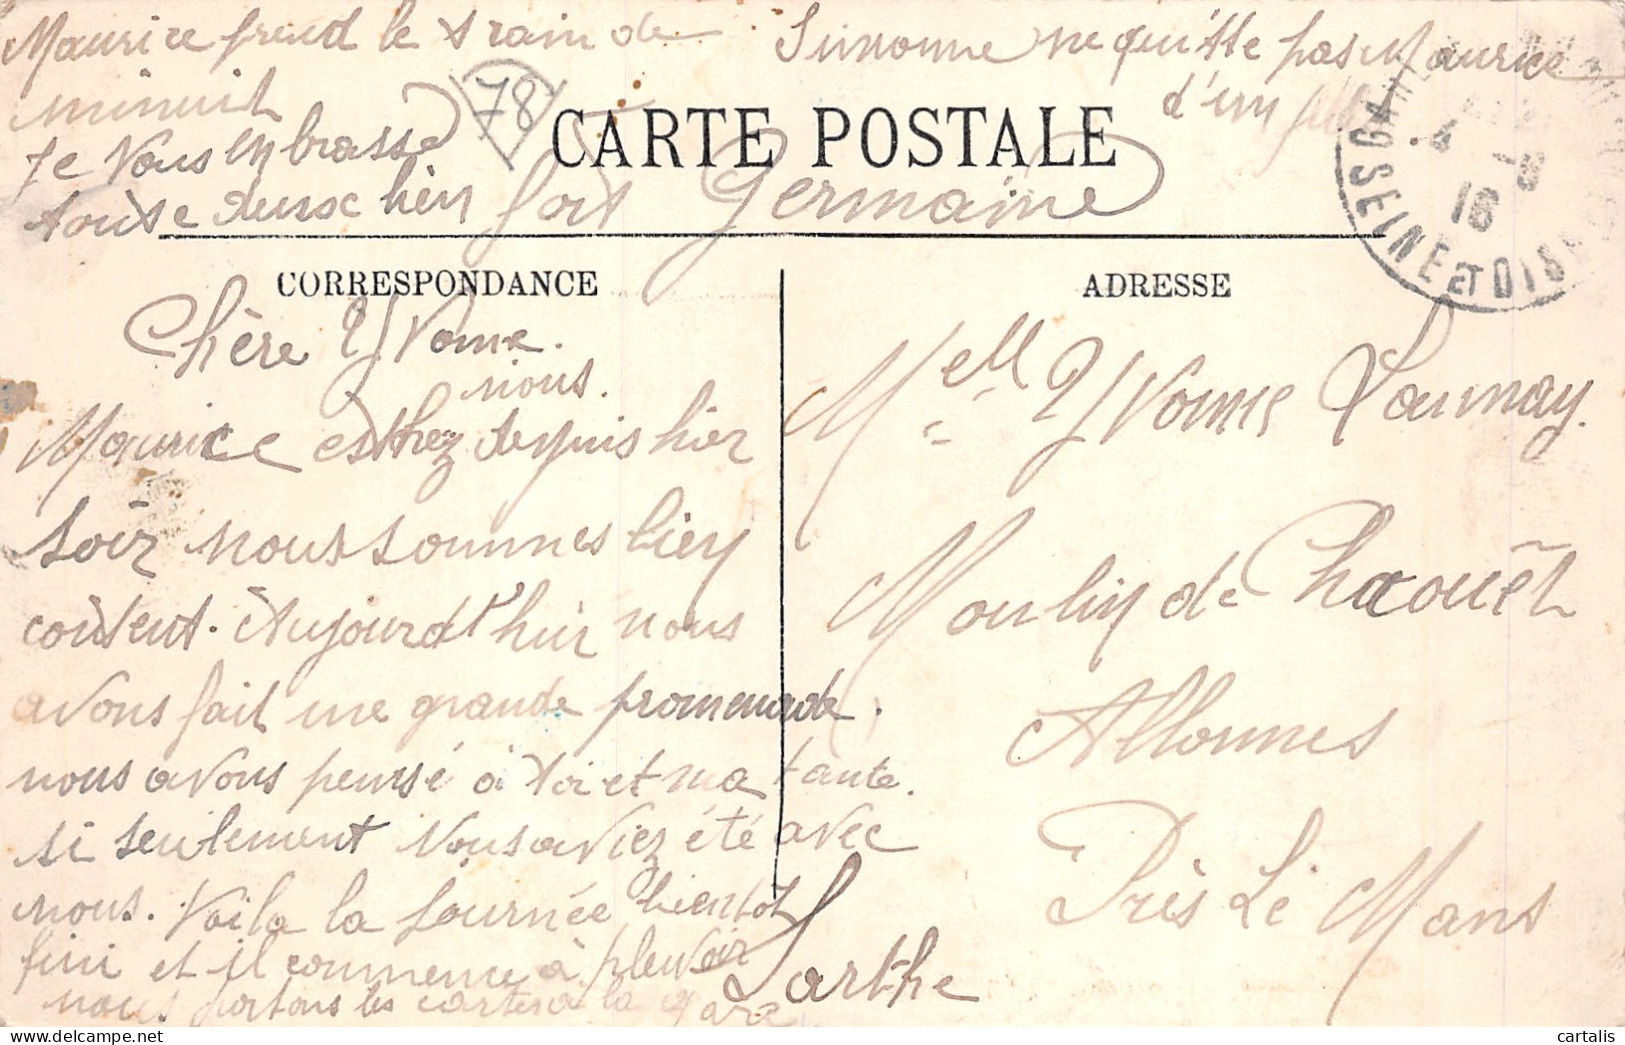 Maurice prend le train de
minuit
Je vous enbrasse
toute deux bien fort Germaine
Simonne ne quitte pas Maurice
d'un
78
CARTE POSTALE
SEINE ET OISE
4 -8
16
CORRESPONDANCE
ADRESSE
Chère Yvonne.
nous.
Maurice est chez depuis hier
soir nous sommes bien
content. Aujourd'hui nous
avons fait une grande promenade.
nous avons pensé à toi et ma tante.
si seulement vous aviez été avec
nous. Voila la journée bientôt
fini et il commence à pleuvoir
nous portons les cartes a la gare
Melle Yvonne Launay.
Moulin de Chaouët
Allonnes
Près Le Mans
Sarthe
cartalis